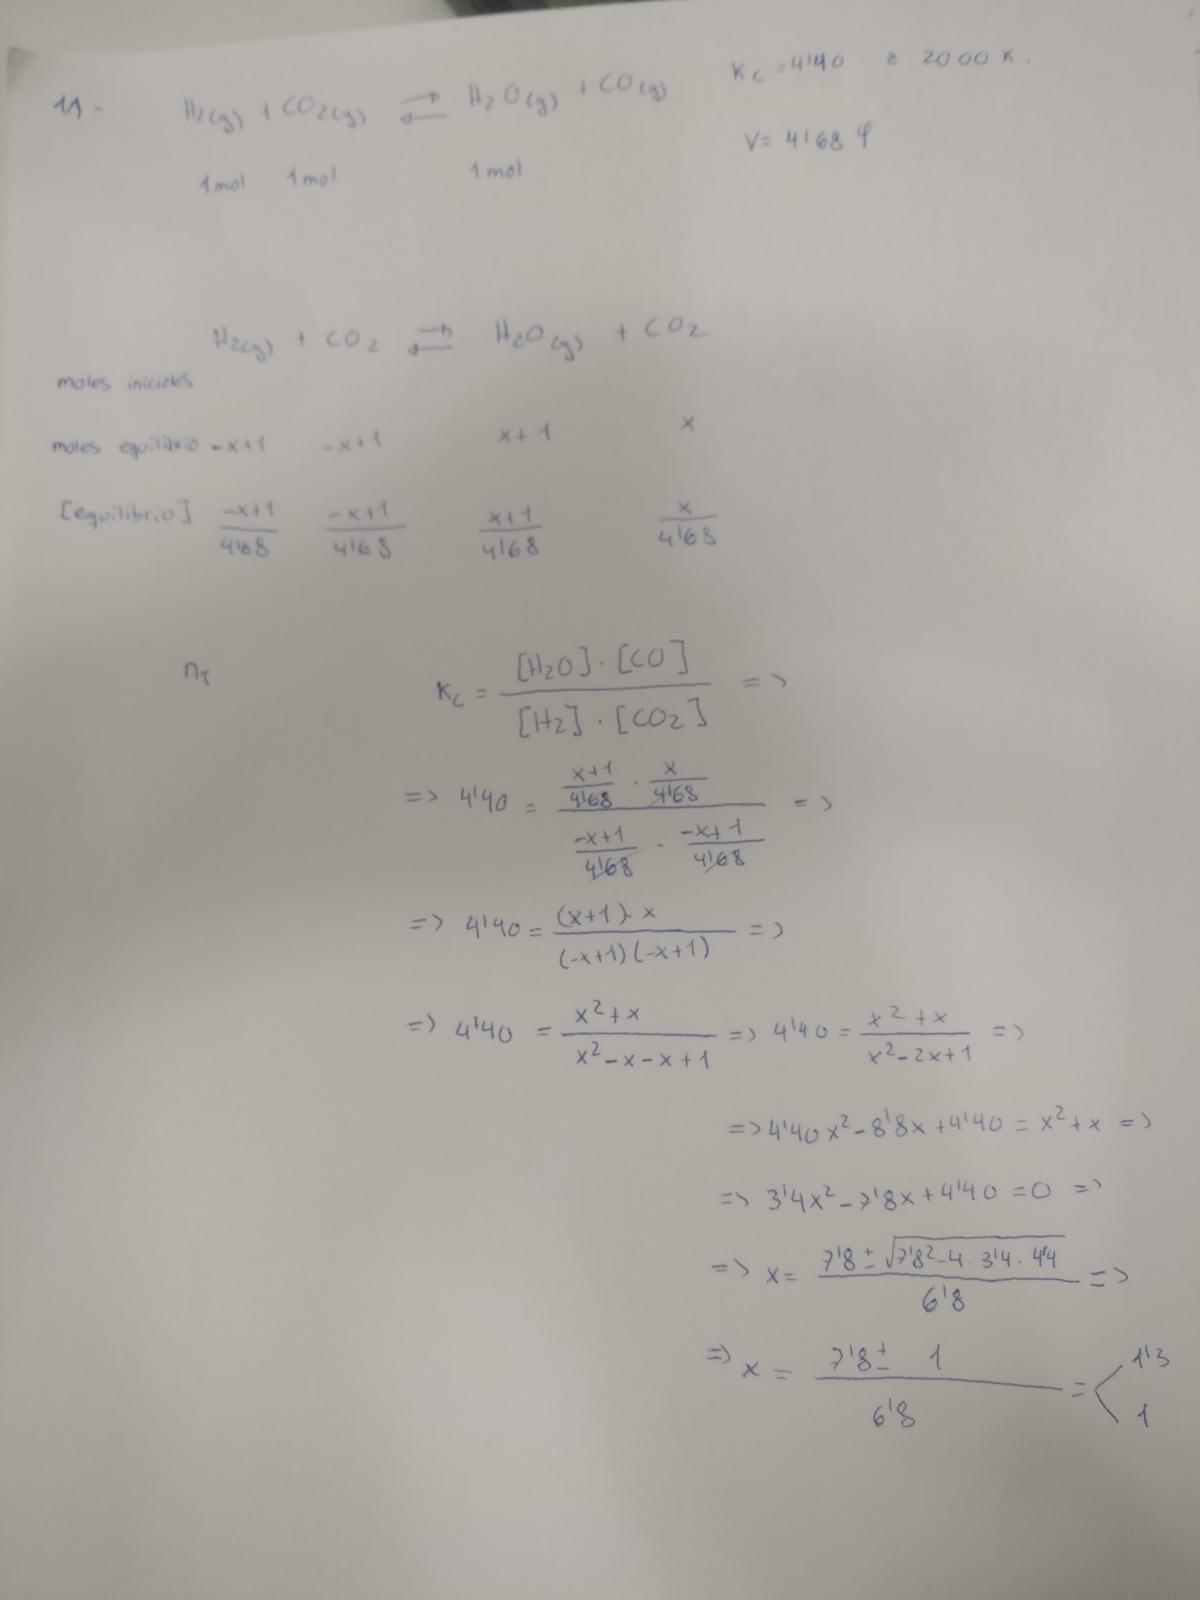 11.- H2(g) + CO2(g) ⇌ H2O(g) + CO(g) Kc = 4'40 a 2000 K.
1 mol 1 mol 1 mol V = 4'68 l
H2(g) + CO2 ⇌ H2O(g) + CO2
moles iniciales
moles equilibrio -x+1 -x+1 x+1 x
[equilibrio] (-x+1)/4'68 (-x+1)/4'68 (x+1)/4'68 x/4'68
nT Kc = [H2O]·[CO] / [H2]·[CO2] =>
=> 4'40 = ((x+1)/4'68 · x/4'68) / ((-x+1)/4'68 · (-x+1)/4'68) =>
=> 4'40 = (x+1)·x / (-x+1)(-x+1) =>
=> 4'40 = (x²+x) / (x²-x-x+1) => 4'40 = (x²+x) / (x²-2x+1) =>
=> 4'40x² - 8'8x + 4'40 = x² + x =>
=> 3'4x² - 7'8x + 4'40 = 0 =>
=> x = (7'8 ± √(7'8² - 4·3'4·4'4)) / 6'8 =>
=> x = (7'8 ± 1) / 6'8 = < 1'3
1